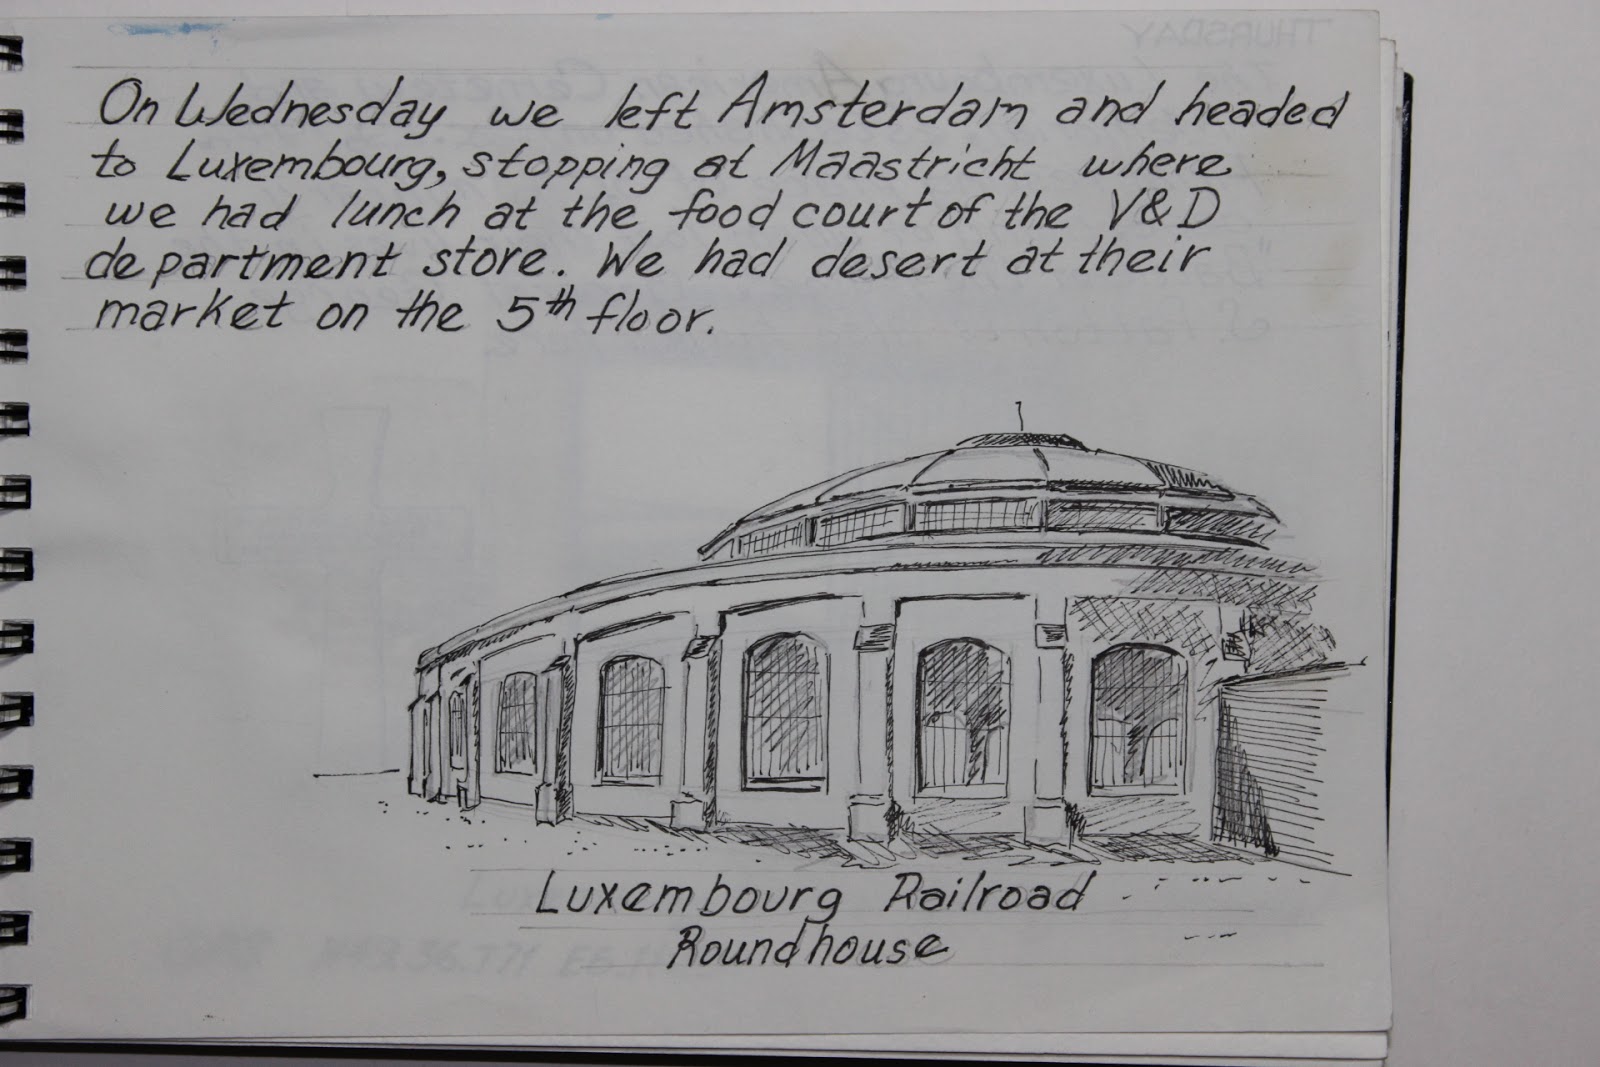 On Wednesday we left Amsterdam and headed
to Luxembourg, stopping at Maastricht where
we had lunch at the food court of the V&D
department store. We had desert at their
market on the 5th floor.
Luxembourg Railroad
Roundhouse